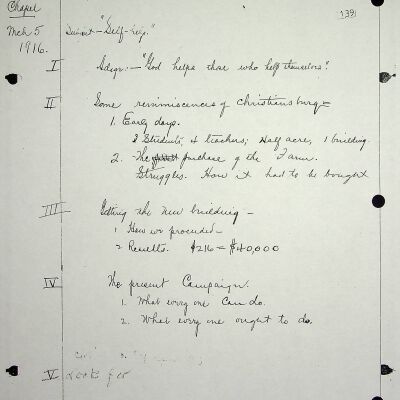 Chapel
1391
Mch 5
1916.
"Self-help."
I "God helps those who help themselves".
II Some reminiscences of Christiansburg
1. Early days.
Students, 4 teachers; Half acre, 1 building.
2. The purchase of the Farm.
Struggles. How it had to be bought
III Getting the new building -
1 How we proceeded -
2 Results. $216 = $40,000
IV The present Campaign.
1. What every one can do.
2. What every one ought to do.
V